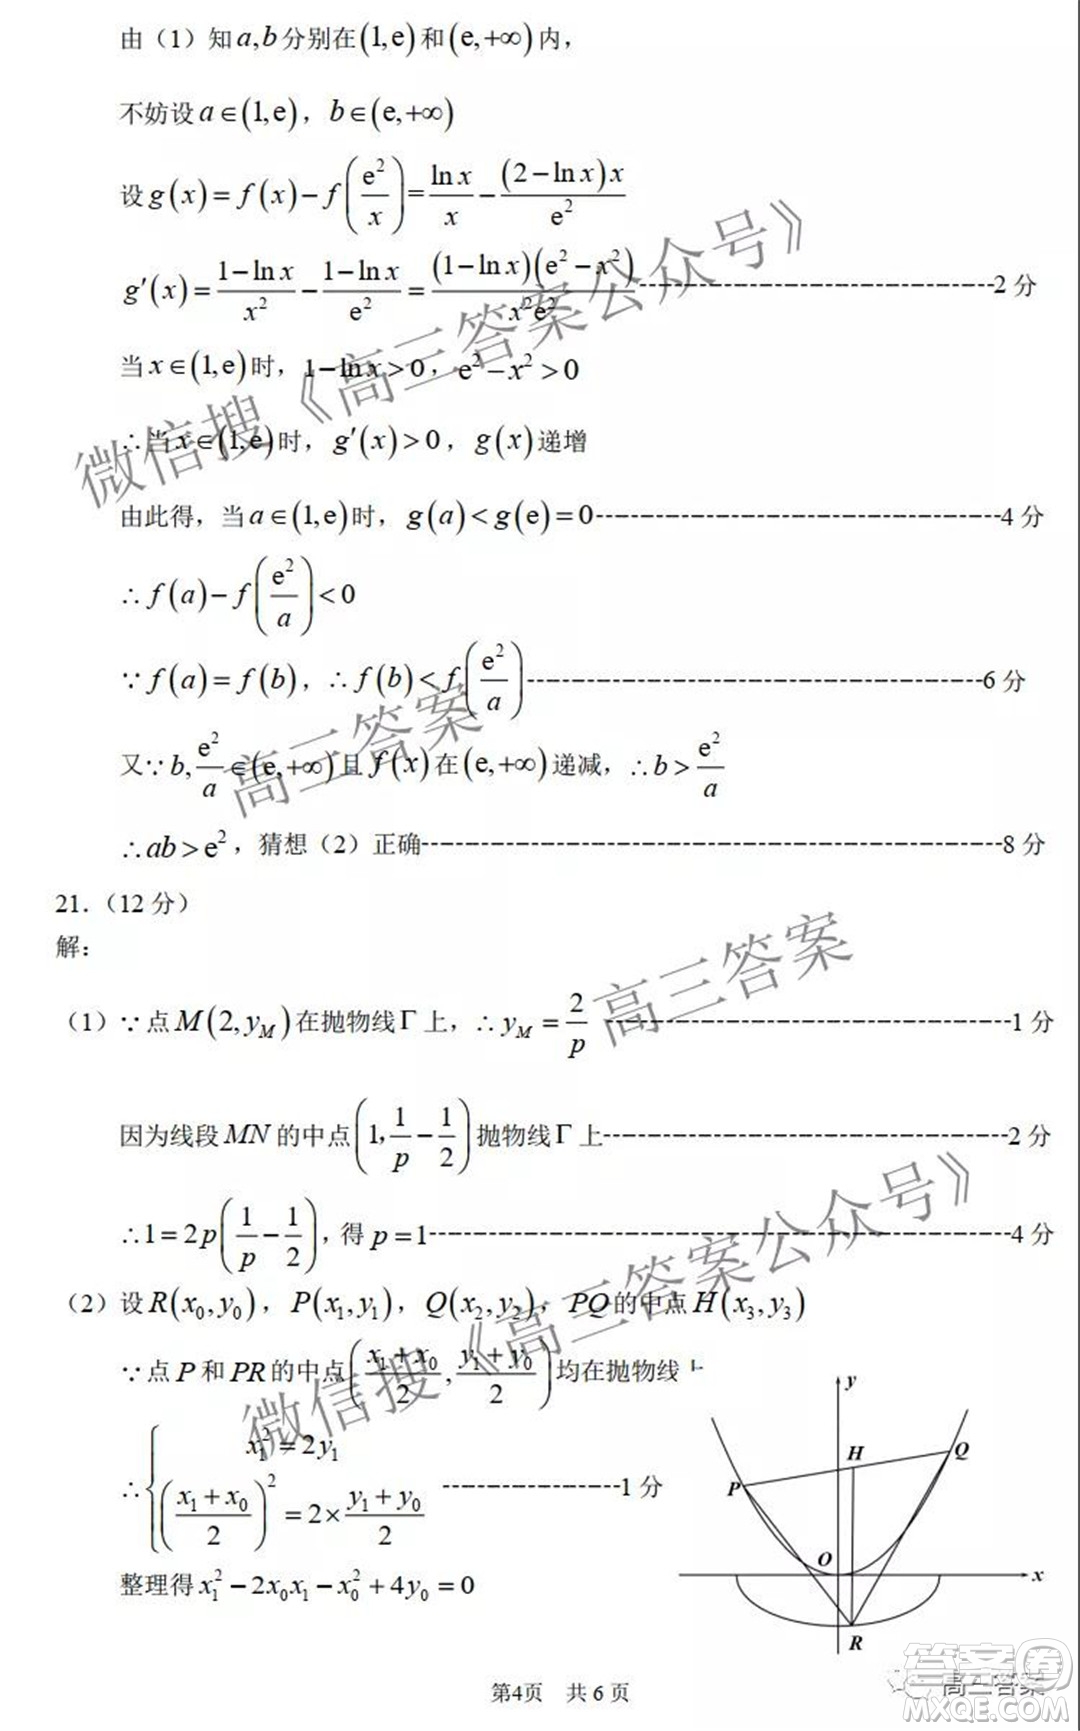 由（1）知a,b分别在(1,e)和(e,+∞)内，
不妨设a∈(1,e)，b∈(e,+∞)
设g(x)=f(x)-f(e²/x)=lnx/x-(2-lnx)x/e²
g′(x)=(1-lnx)/x²-(1-lnx)/e²=(1-lnx)(e²-x²)/x²e²------------------------2 分
当x∈(1,e)时，1-lnx>0，e²-x²>0
∴当x∈(1,e)时，g′(x)>0，g(x)递增
由此得，当a∈(1,e)时，g(a)<g(e)=0------------------------4 分
∴f(a)-f(e²/a)<0
∵f(a)=f(b)，∴f(b)<f(e²/a)------------------------6 分
又∵b,e²/a∈(e,+∞)且f(x)在(e,+∞)递减，∴b>e²/a
∴ab>e²，猜想（2）正确------------------------8 分
21.（12 分）
解：
（1）∵点M(2,y_M)在抛物线Γ上，∴y_M=2/p------------------------1 分
因为线段MN的中点(1,1/p-1/2)抛物线Γ上------------------------2 分
∴1=2p(1/p-1/2)，得p=1------------------------4 分
（2）设R(x₀,y₀)，P(x₁,y₁)，Q(x₂,y₂)，PQ的中点H(x₃,y₃)
∵点P和PR的中点((x₁+x₀)/2,(y₁+y₀)/2)均在抛物线上
∴{x₁²=2y₁
((x₁+x₀)/2)²=2×(y₁+y₀)/2 ------------------1 分
整理得x₁²-2x₀x₁-x₀²+4y₀=0
y
H
Q
P
O
x
R
第4页 共6页
微信搜《高三答案公众号》
高三答案
高三答案
微信搜《高三答案公众号》
高三答案
答案圈
MXQE.COM